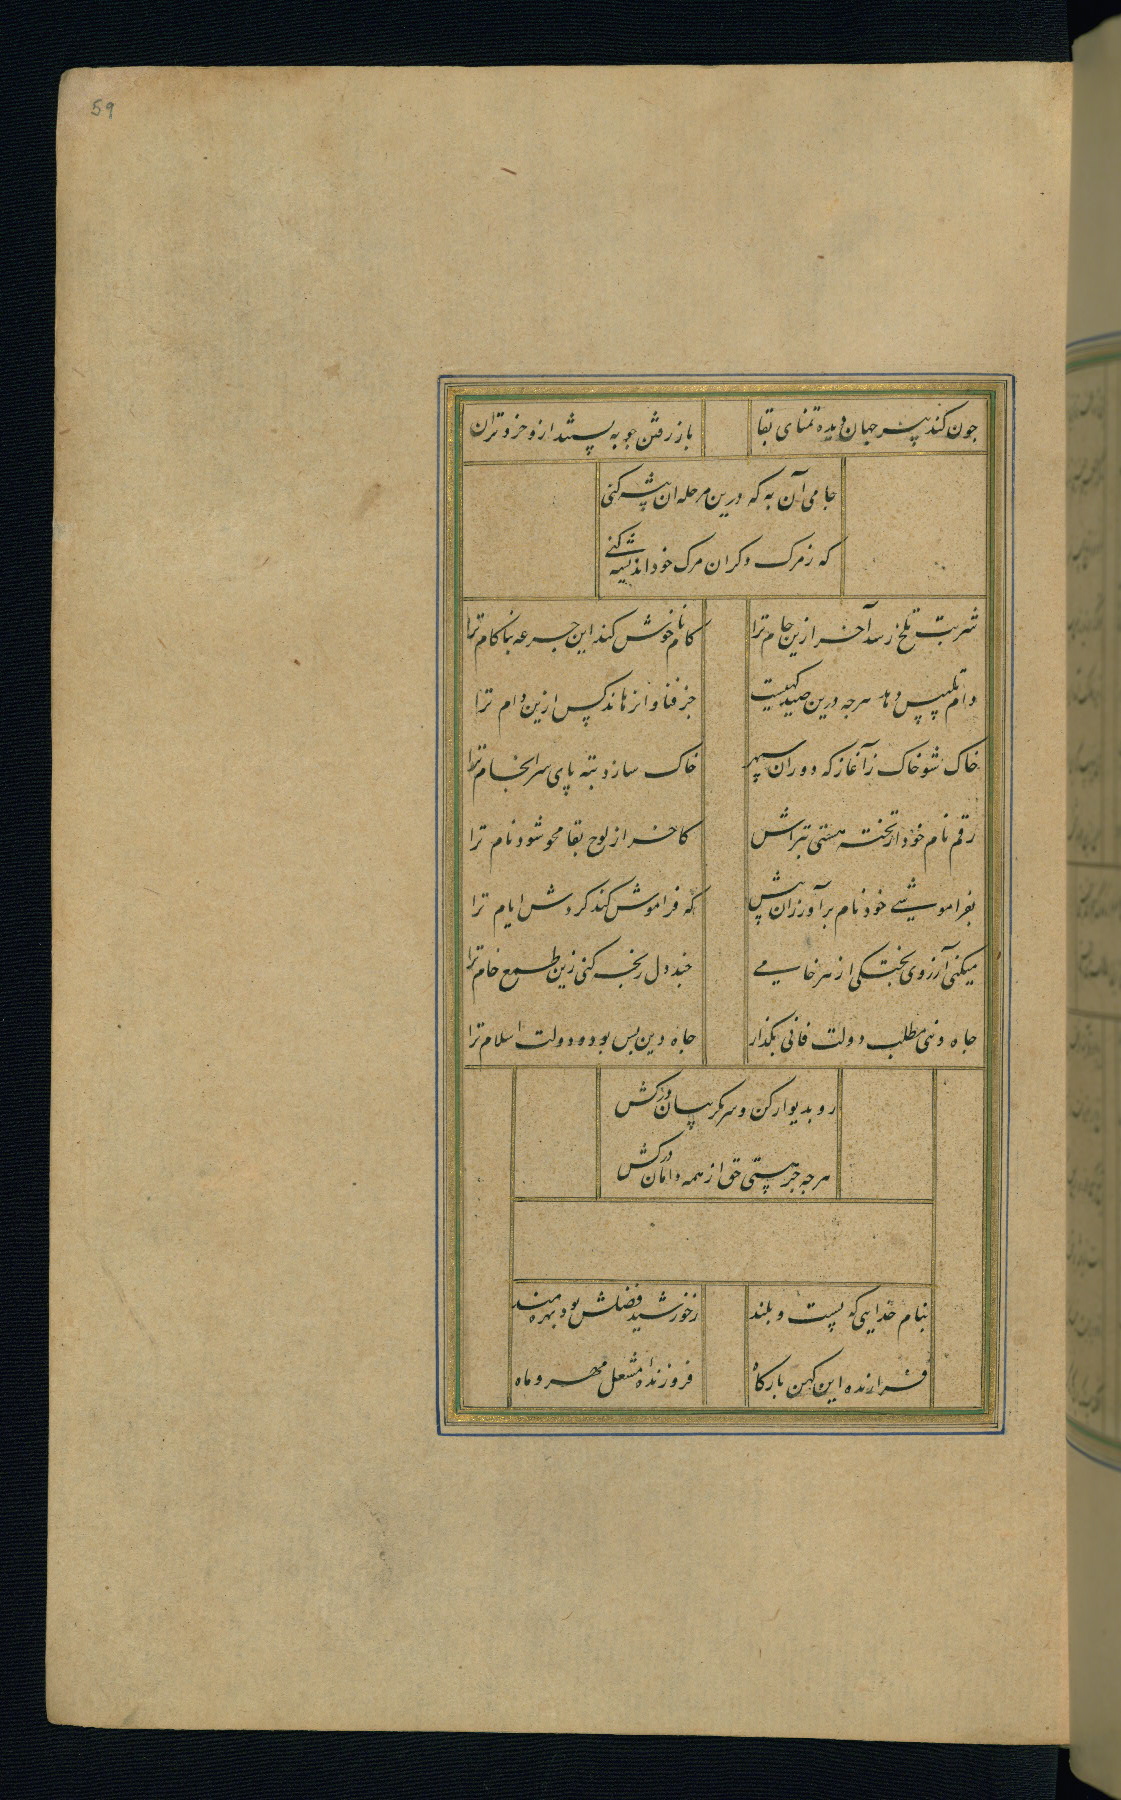 59
جون کند پیر جهان دیده تمنای بقا باز رفتن جو به پسندد ازو خرد و تران
جامی آن به که درین مرحله ان پیشه کنی
که ز مرک دکران مرک خود اندیشه کنی
شربت تلخ رسد آخر ازین جام ترا کام ناخوش کند این جرعه بناکام ترا
دام تلبیس دهد هرجه درین صیدکهیست جز فنا وانرهاند کس ازین دام ترا
خاک شو خاک ز آغاز که دوران سپهر خاک سازد بته پای سرانجام ترا
رقم نام خود از تخته هستی بتراش کاخر از لوح بقا محو شود نام ترا
بفراموشی خود نام برآور زان پیش که فراموش کند کردش ایام ترا
میکنی آرزوی پختکی از هر خامی جند دل رنجه کنی زین طمع خام ترا
جاه دنیی مطلب دولت فانی بکذار جاه دین بس بود و دولت اسلام ترا
رو بدیوار کن و سر بکریبان درکش
هرجه جز هستی حق از همه دامان درکش
بنام خدایی که پست و بلند ز خورشید فضلش بود بهره‌مند
فرازنده این کهن بارکاه فروزندهٔ مشعل مهر و ماه